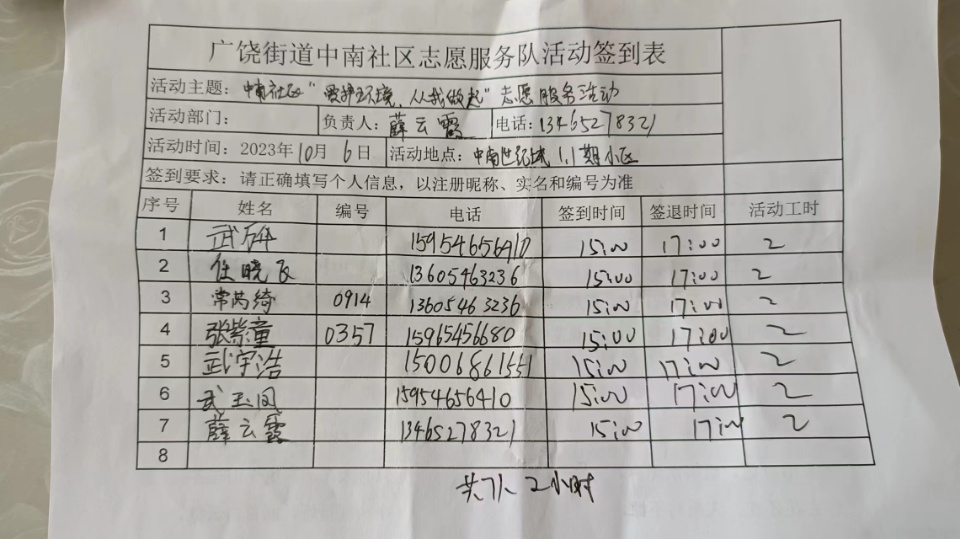 广饶街道中南社区志愿服务队活动签到表
活动主题: 中南社区“爱护环境、从我做起”志愿服务活动
活动部门: 负责人: 薛云霞 电话: 13465278321
活动时间: 2023年10月6日 活动地点: 中南世纪城1.1期小区
签到要求: 请正确填写个人信息，以注册昵称、实名和编号为准
序号 姓名 编号 电话 签到时间 签退时间 活动工时
1 武 15954656410 15:00 17:00 2
2 任晓飞 13605463236 15:00 17:00 2
3 常芮绮 0914 13605463236 15:00 17:00 2
4 张紫童 0357 15965456680 15:00 17:00 2
5 武宇浩 15006861551 15:00 17:00 2
6 武玉凤 15954656410 15:00 17:00 2
7 薛云霞 13465278321 15:00 17:00 2
8
共7人 2小时